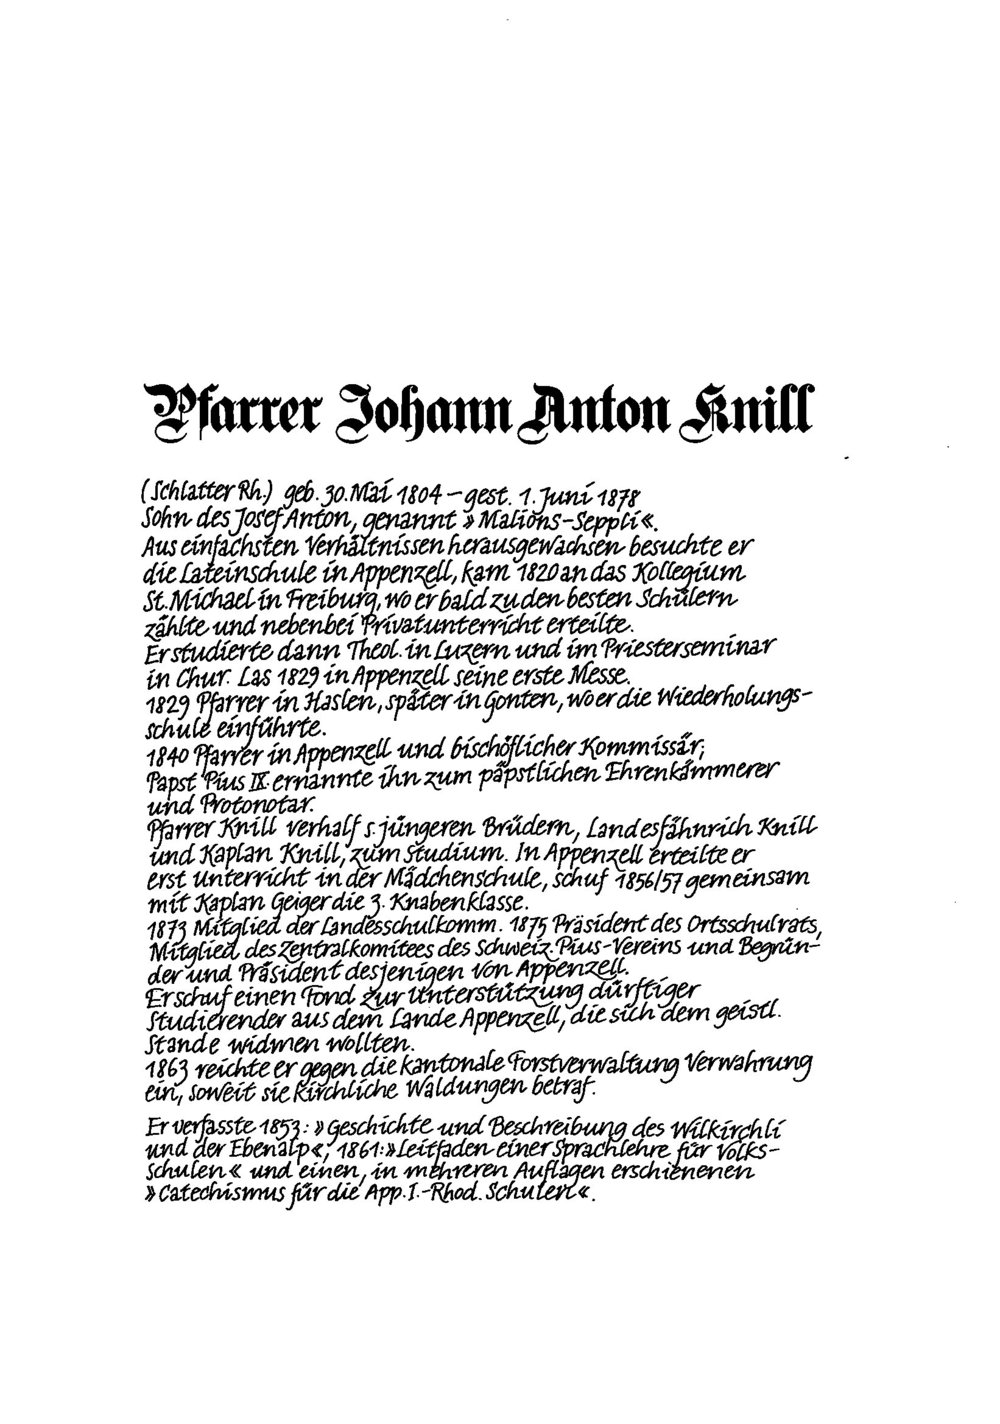 Pfarrer Johann Anton Knill
(Schlatter Rh.) geb. 30. Mai 1804 – gest. 1. Juni 1878
Sohn des Josef Anton, genannt »Malions-Seppli«.
Aus einfachsten Verhältnissen herausgewachsen besuchte er
die Lateinschule in Appenzell, kam 1820 an das Kollegium
St. Michael in Freiburg, wo er bald zu den besten Schülern
zählte und nebenbei Privatunterricht erteilte.
Er studierte dann Theol. in Luzern und im Priesterseminar
in Chur. Las 1829 in Appenzell seine erste Messe.
1829 Pfarrer in Haslen, später in Gonten, wo er die Wiederholungs-
schule einführte.
1840 Pfarrer in Appenzell und bischöflicher Kommissär;
Papst Pius IX. ernannte ihn zum päpstlichen Ehrenkämmerer
und Protonotar.
Pfarrer Knill verhalf s. jüngeren Brüdern, Landesfähnrich Knill
und Kaplan Knill, zum Studium. In Appenzell erteilte er
erst Unterricht in der Mädchenschule, schuf 1856/57 gemeinsam
mit Kaplan Geiger die 3. Knabenklasse.
1873 Mitglied der Landesschulkomm. 1875 Präsident des Ortsschulrats,
Mitglied des Zentralkomitees des Schweiz. Pius-Vereins und Begrün-
der und Präsident desjenigen von Appenzell.
Er schuf einen Fond zur Unterstützung dürftiger
Studierender aus dem Lande Appenzell, die sich dem geistl.
Stande widmen wollten.
1863 reichte er gegen die kantonale Forstverwaltung Verwahrung
ein, soweit sie kirchliche Waldungen betraf.
Er verfasste 1853: »Geschichte und Beschreibung des Wilkirchli
und der Ebenalp«, 1861: »Leitfaden einer Sprachlehre für Volks-
schulen« und einen, in mehreren Auflagen erschienenen
»Catechismus für die App. I.-Rhod. Schulen«.